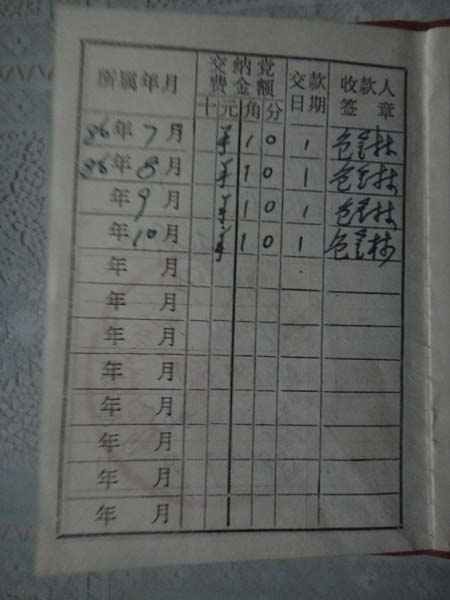 所属年月 交纳党费金额 交款日期 收款人签章
十 元 角 分
86年7月 ¥ 1 0 1
86年8月 ¥ 1 0 1
年9月 ¥ 1 0 1
年10月 ¥ 1 0 1
年 月
年 月
年 月
年 月
年 月
年 月
年 月
年 月